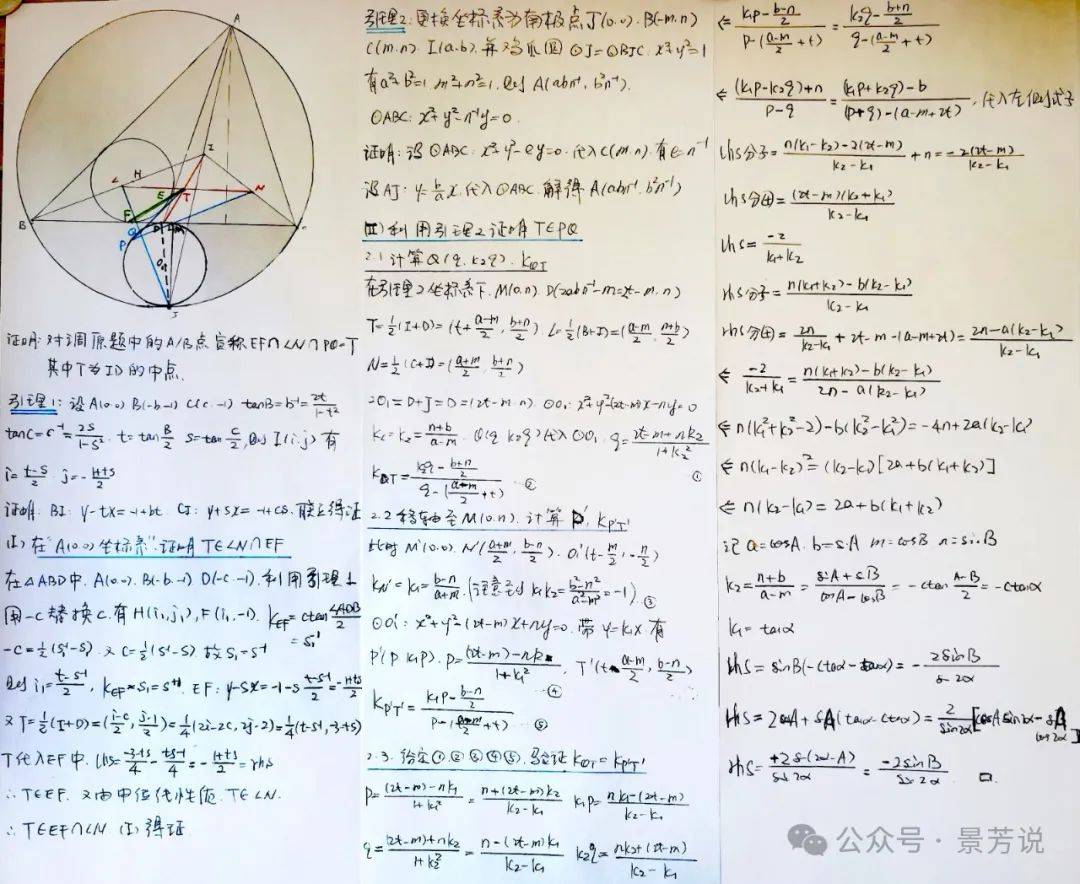 A
I
L
H
E
T
N
F
B
Q
D
M
C
P
O₁
J
证明: 对调原题中的A/B点, 宣称 EF∩LN∩PQ=T
其中T为ID的中点.
引理1: 设A(0·0) B(-b·-1) C(c·-1) tanB=b⁻¹=2t/(1-t²)
tanC=c⁻¹=2s/(1-s²). t=tan B/2 s=tan C/2, 则 I(i·j) 有
i=(t-s)/2 j=-(1+ts)/2
证明. BI: y-tx=-1+bt CI: y+sx=-1+cs. 联立得证
(I) 在"A(0·0)坐标系".证明 T∈LN∩EF
在△ABD中. A(0·0). B(-b·-1) D(-c·-1). 利用引理1
用-c替换c. 有H(i₁,j₁), F(i₁,-1). K_EF=ctan ∠ADB/2 = s₁⁻¹
-c=½(s₁⁻¹-s₁) 又 c=½(s⁻¹-s) 故 s₁=s⁻¹
则 i₁=(t-s⁻¹)/2,
又T=½(I+D)=((i-c)/2, (j-1)/2)=¼(2i-2c, 2j-2)=¼(t-s⁻¹, -3-ts)
T代入EF中.
∴T∈EF. 又由中位线性质. T∈LN.
∴T∈EF∩LN (I)得证
引理2: 更换坐标系为南极点J(0·0). B(-m·n)
C(m·n). I(a·b). 并鸡爪圆 ⊙J=⊙BIC. x²+y²=1
有a²+b²=1 m²+n²=1. 则 A(abn⁻¹, b²n⁻¹).
⊙ABC: x²+y²-n⁻¹y=0.
证明: 设⊙ABC: x²+y²-ey=0. 代入C(m·n). 有e=n⁻¹
设AJ: y=b/a x. 代入⊙ABC. 解得A(abn⁻¹, b²n⁻¹)
(II) 利用引理2证明T∈PQ
2.1 计算Q(q, k₂q). K_QT
在引理2坐标系下. M(0·n). D(2abn⁻¹-m=2t-m, n)
T=½(I+D)=(t+(a-m)/2, (b+n)/2) L=½(B+I)=((a-m)/2, (n+b)/2)
N=½(C+I)=((a+m)/2, (b+n)/2)
2O₁=D+J=D=(2t-m, n) ⊙O₁: x²+y²-(2t-m)x-ny=0
K_L=k₂=(n+b)/(a-m). Q(q k₂q)代入⊙O₁. q=(2t-m+nk₂)/(1+k₂²) ①
K_QT=(k₂q-(b+n)/2)/(q-((a-m)/2+t)) ②
2.2 移轴至M(0,n). 计算P', K_P'T'
此时 M'(0,0). N'((a+m)/2, (b-n)/2). O₁'(t-m/2, -n/2)
K_N'=k₁=(b-n)/(a+m). (注意到k₁k₂=(b²-n²)/(a²-m²)=-1) ③
⊙O₁': x²+y²-(2t-m)x+ny=0. 带 y=k₁x 有
P'(p k₁p). p=((2t-m)-nk₁)/(1+k₁²) ④ T'(t+(a-m)/2, (b-n)/2)
K_P'T'=(k₁p-(b-n)/2)/(p-((a-m)/2+t)) ⑤
2.3. 给定①②③④⑤. 验证 K_QT=K_P'T'
p=((2t-m)-nk₁)/(1+k₁²)=(n+(2t-m)k₂)/(k₂-k₁) k₁p=(nk₁-(2t-m))/(k₂-k₁)
q=((2t-m)+nk₂)/(1+k₂²)=(n-(2t-m)k₁)/(k₂-k₁) k₂q=(nk₂+(2t-m))/(k₂-k₁)
⇐ (k₁p-(b-n)/2)/(p-((a-m)/2+t))=(k₂q-(b+n)/2)/(q-((a-m)/2+t))
⇐ ((k₁p-k₂q)+n)/(p-q)=((k₁p+k₂q)-b)/((p+q)-(a-m+2t)), 代入左侧式子
lhs分子=(n(k₁-k₂)-2(2t-m))/(k₂-k₁)+n=-2(2t-m)/(k₂-k₁)
lhs分母=(2t-m)(k₂+k₁)/(k₂-k₁)
lhs=-2/(k₁+k₂)
rhs分子=(n(k₁+k₂)-b(k₂-k₁))/(k₂-k₁)
rhs分母=2n/(k₂-k₁)+2t-m-(a-m+2t)=(2n-a(k₂-k₁))/(k₂-k₁)
⇐ -2/(k₂+k₁)=(n(k₁+k₂)-b(k₂-k₁))/(2n-a(k₂-k₁))
⇐ n(k₁²+k₂²-2)-b(k₂²-k₁²)=-4n+2a(k₂-k₁)
⇐ n(k₁-k₂)²=(k₂-k₁)[2a+b(k₁+k₂)]
⇐ n(k₂-k₁)=2a+b(k₁+k₂)
记 a=cosA. b=sinA m=cosB n=sinB
k₂=(n+b)/(a-m)=(sinA+sinB)/(cosA-cosB)=-ctan (A-B)/2=-ctanα
k₁=tanα
lhs=sinB(-ctanα-tanα)=-2sinB/sin2α
rhs=2cosA+sinA(tanα-ctanα)=2/sin2α[cosAsin2α-sinAcos2α]
rhs=+2sin(2α-A)/sin2α=-2sinB/sin2α □.
公众号·景芳说